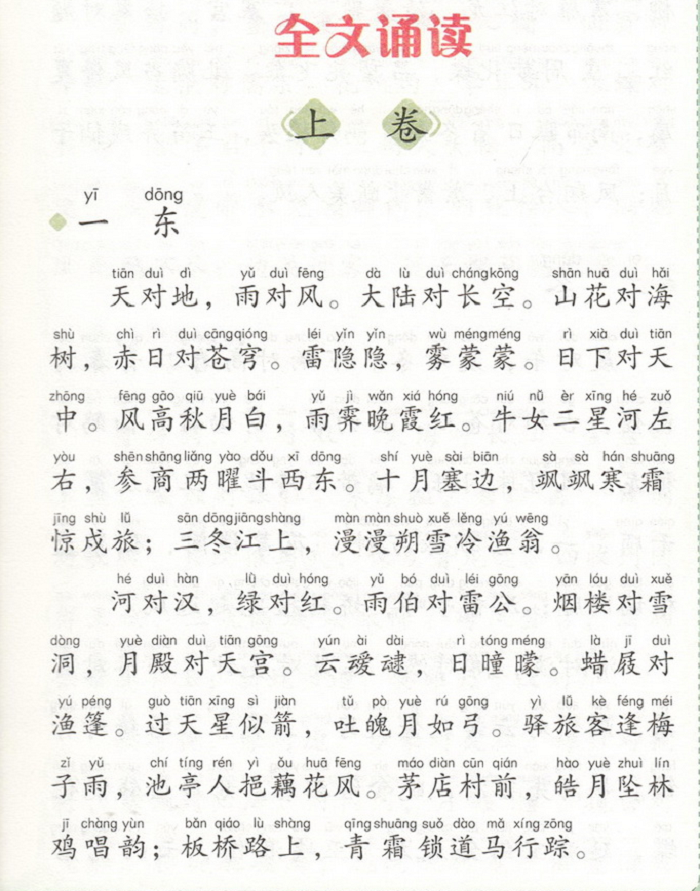 全文诵读
上 卷
yī dōng
一 东
tiān duì dì yǔ duì fēng dà lù duì chángkōng shān huā duì hǎi
天对地，雨对风。大陆对长空。山花对海
shù chì rì duì cāngqióng léi yǐn yǐn wù méngméng rì xià duì tiān
树，赤日对苍穹。雷隐隐，雾蒙蒙。日下对天
zhōng fēng gāo qiū yuè bái yǔ jì wǎn xiá hóng niú nǚ èr xīng hé zuǒ
中。风高秋月白，雨霁晚霞红。牛女二星河左
yòu shēnshāngliǎng yào dǒu xī dōng shí yuè sài biān sà sà hán shuāng
右，参商两曜斗西东。十月塞边，飒飒寒霜
jīng shù lǚ sān dōngjiāngshàng màn màn shuò xuě lěng yú wēng
惊戍旅；三冬江上，漫漫朔雪冷渔翁。
hé duì hàn lǜ duì hóng yǔ bó duì léi gōng yān lóu duì xuě
河对汉，绿对红。雨伯对雷公。烟楼对雪
dòng yuè diàn duì tiān gōng yún ài dài rì tóng méng là jī duì
洞，月殿对天宫。云叆叇，日曈曚。蜡屐对
yú péng guò tiān xīng sì jiàn tǔ pò yuè rú gōng yì lǚ kè féng méi
渔篷。过天星似箭，吐魄月如弓。驿旅客逢梅
zǐ yǔ chí tíng rén yì ǒu huā fēng máo diàn cūn qián hào yuè zhuì lín
子雨，池亭人挹藕花风。茅店村前，皓月坠林
jī chàng yùn bǎn qiáo lù shàng qīng shuāng suǒ dào mǎ xíng zōng
鸡唱韵；板桥路上，青霜锁道马行踪。